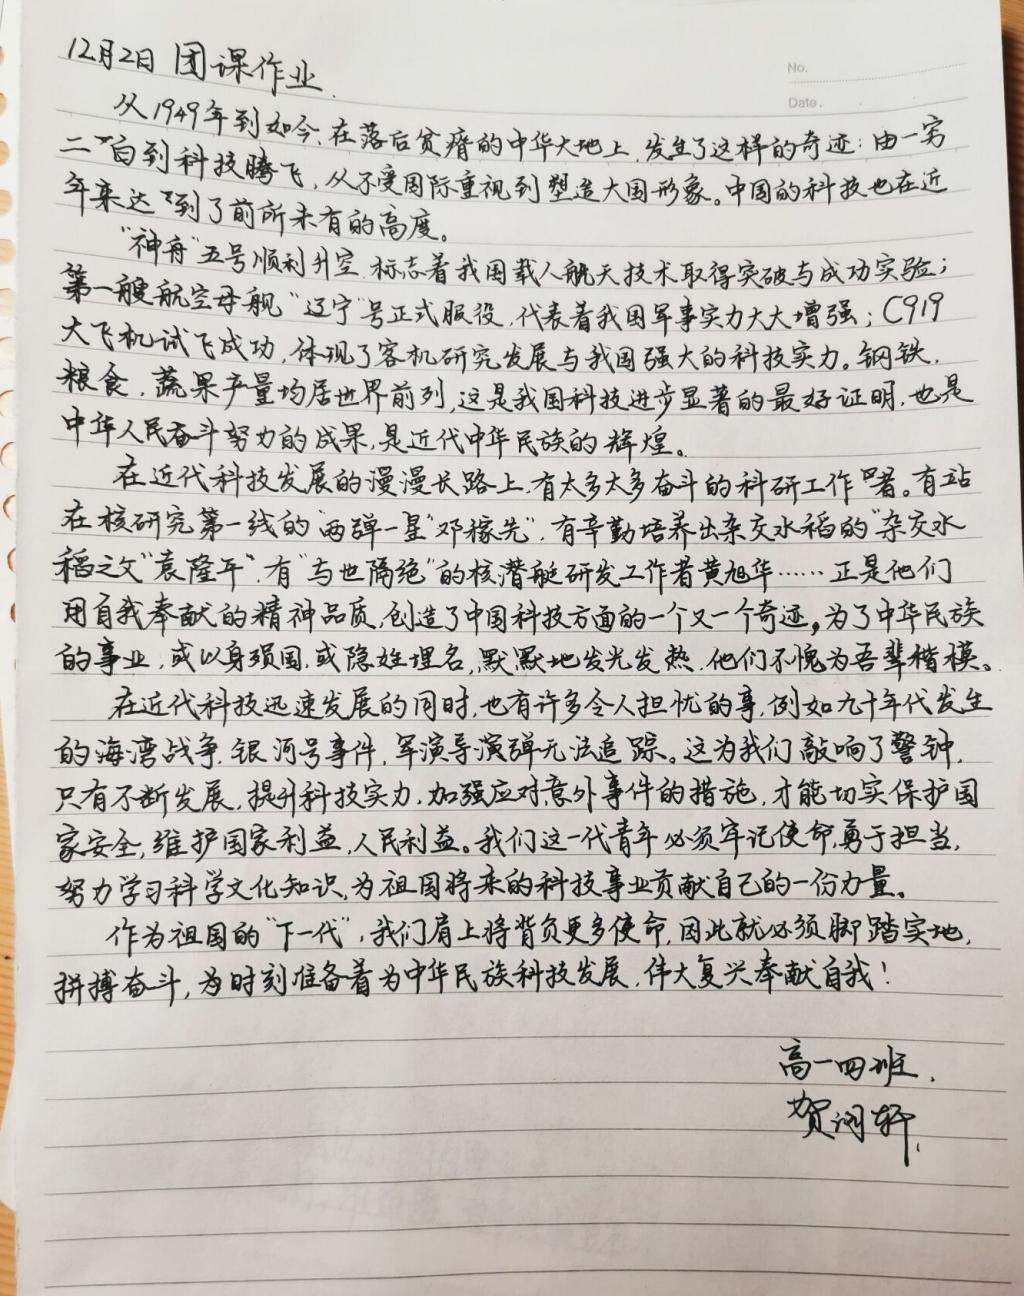 12月2日 团课作业.
No.
Date.
从1949年到如今,在落后贫瘠的中华大地上,发生了这样的奇迹:由一穷
二白到科技腾飞,从不受国际重视到塑造大国形象。中国的科技也在近
年来达到了前所未有的高度。
“神舟”五号顺利升空,标志着我国载人航天技术取得突破与成功实验;
第一艘航空母舰“辽宁”号正式服役,代表着我国军事实力大大增强;C919
大飞机试飞成功,体现了客机研究发展与我国强大的科技实力。钢铁,
粮食,蔬果产量均居世界前列,这是我国科技进步显著的最好证明,也是
中华人民奋斗努力的成果,是近代中华民族的辉煌。
在近代科技发展的漫漫长路上,有太多太多奋斗的科研工作者。有站
在核研究第一线的“两弹一星”邓稼先”,有辛勤培养出杂交水稻的“杂交水
稻之父“袁隆平”,有“与世隔绝”的核潜艇研发工作者黄旭华……正是他们
用自我奉献的精神品质,创造了中国科技方面的一个又一个奇迹,为了中华民族
的事业,或以身殒国,或隐姓埋名,默默地发光发热,他们不愧为吾辈楷模。
在近代科技迅速发展的同时,也有许多令人担忧的事,例如九十年代发生
的海湾战争,银河号事件,军演导演弹无法追踪。这为我们敲响了警钟,
只有不断发展,提升科技实力,加强应对意外事件的措施,才能切实保护国
家安全,维护国家利益,人民利益。我们这一代青年必须牢记使命,勇于担当,
努力学习科学文化知识,为祖国将来的科技事业贡献自己的一份力量。
作为祖国的“下一代”,我们肩上将背负更多使命,因此就必须脚踏实地,
拼搏奋斗,为时刻准备着为中华民族科技发展,伟大复兴奉献自我!
高一四班.
贺润轩.